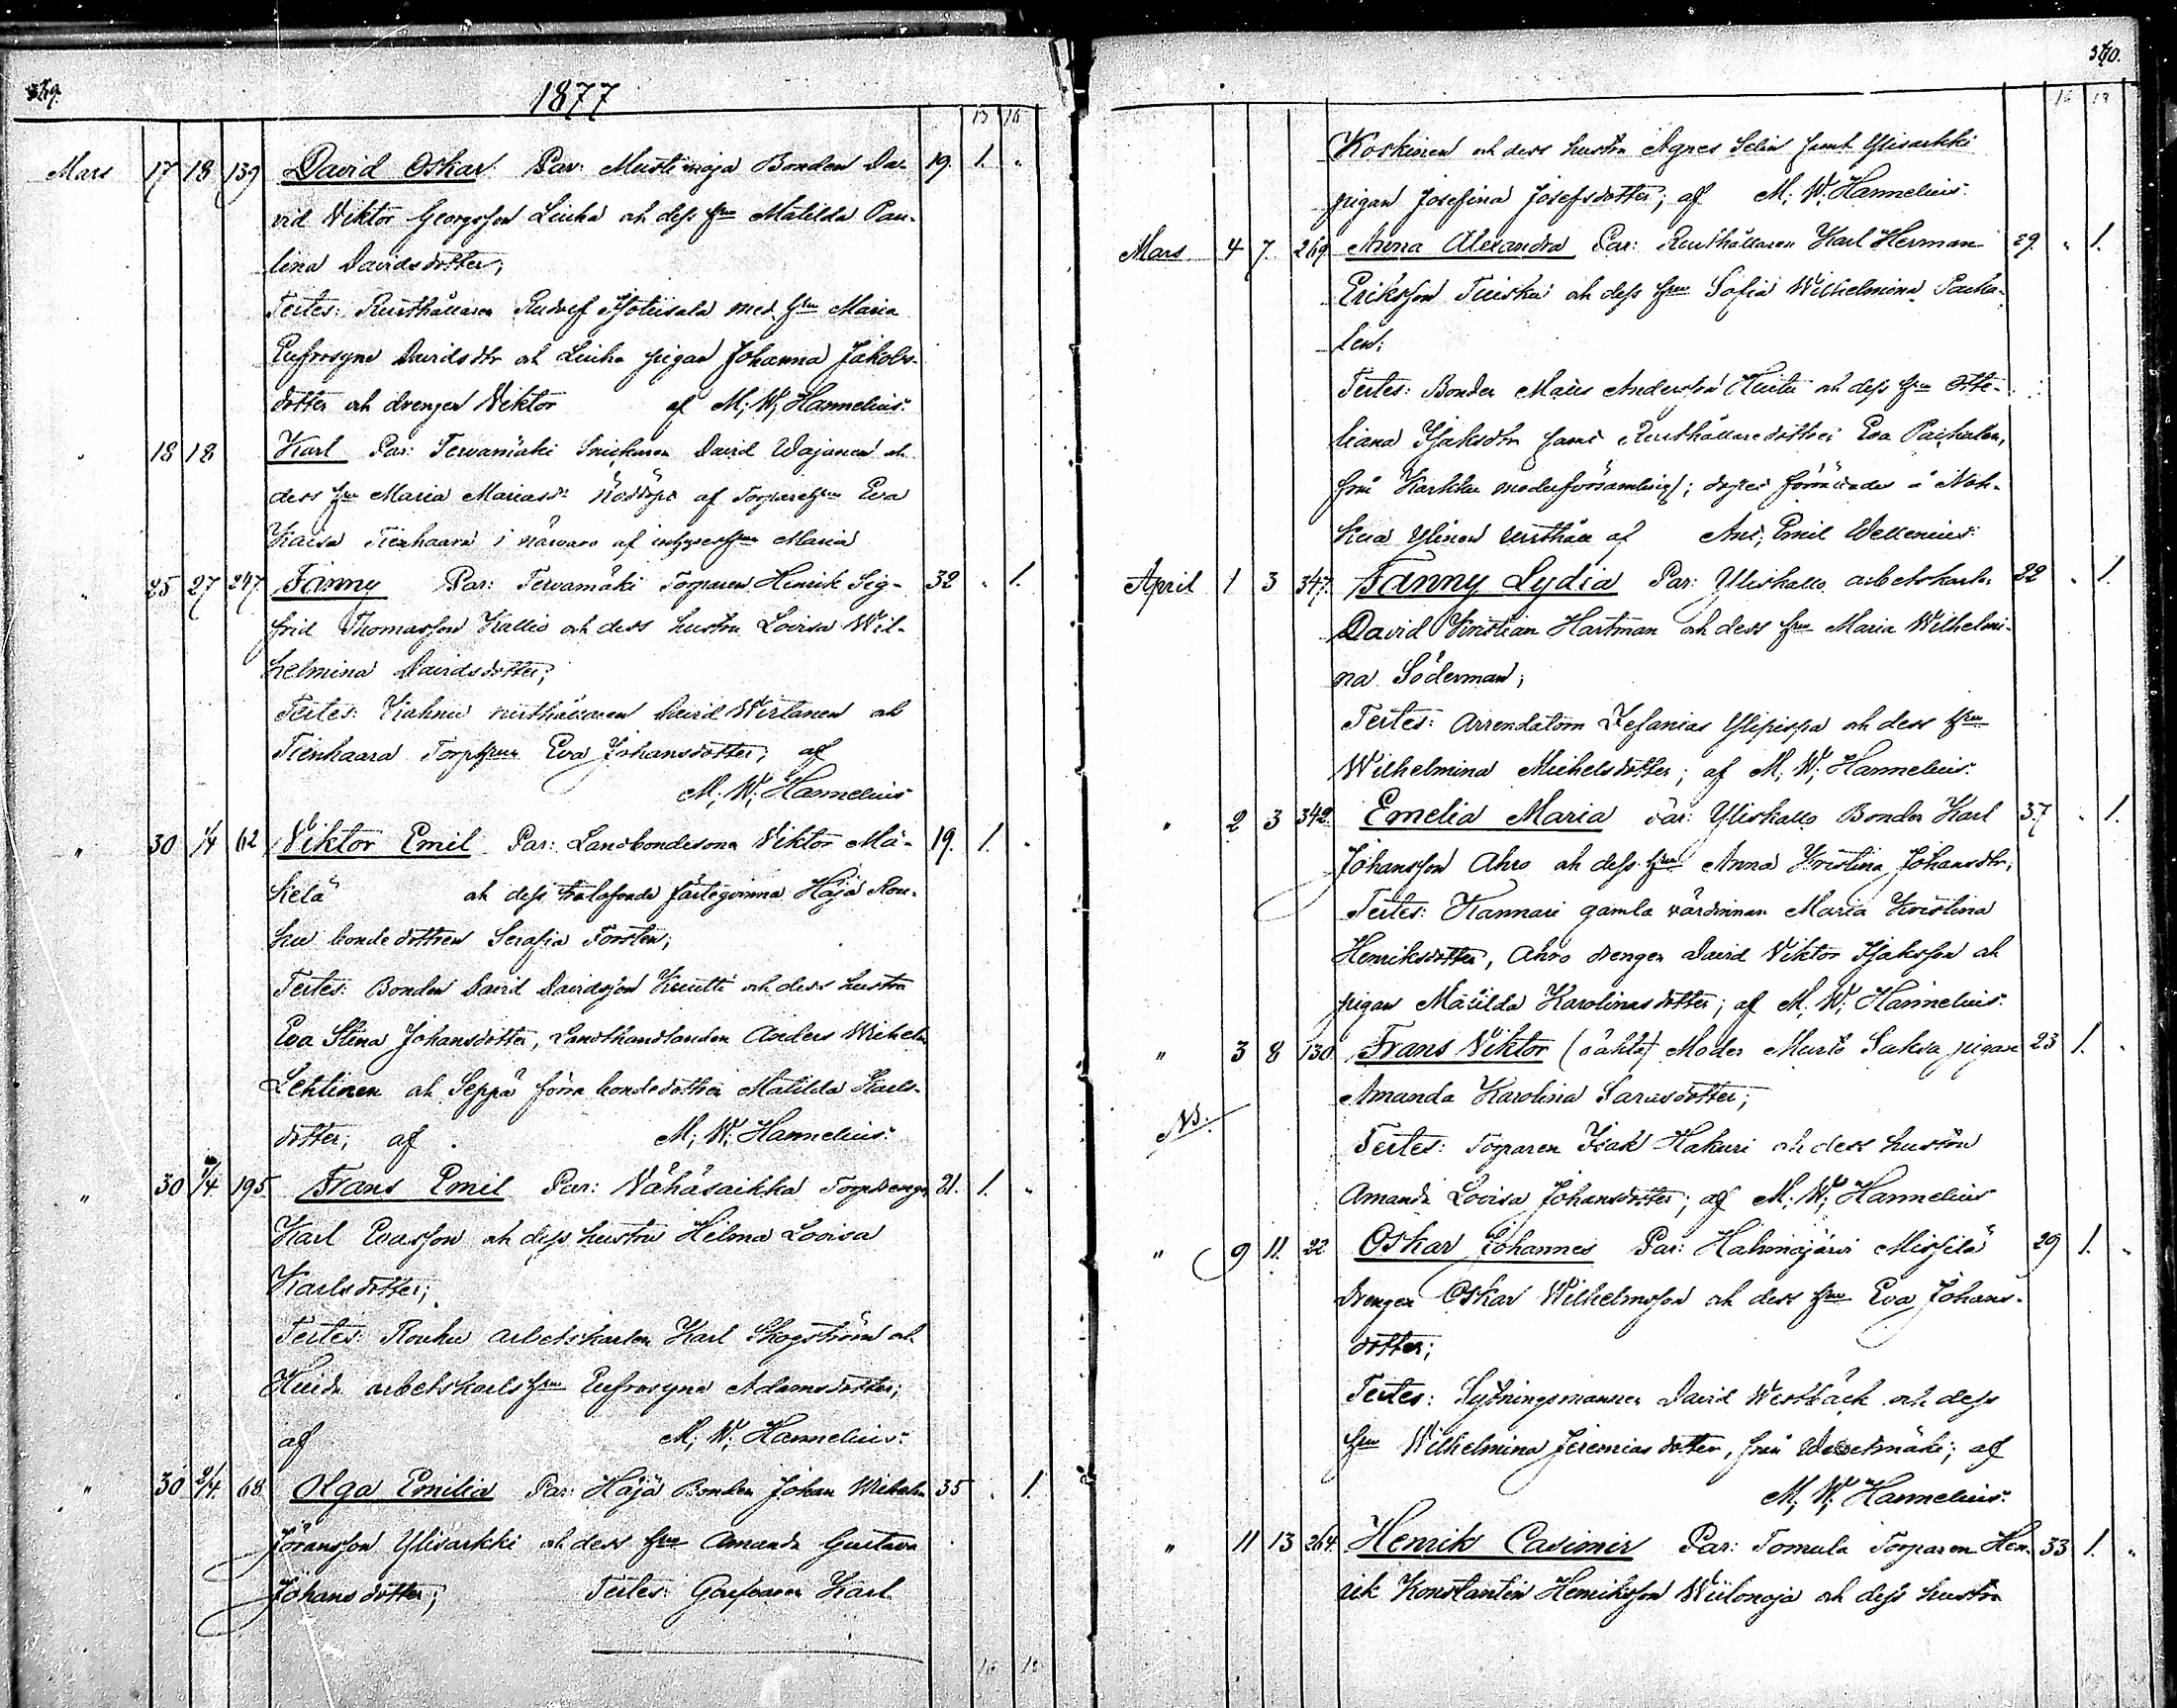 349.
1877
15 16
Mars 17 18 139 David Oskar Par: Mustimoja Bonden Da- 19. 1. "
vid Viktor Georgsson Liuha och dess Hru Matilda Pau-
lina Davidsdotter;
Testes: Rusthållaren Rudolf Isotusala med Hru Maria
Eufrosyne Davidsdtr och Liuha pigan Johanna Jakobs-
dotter och drengen Viktor af M. W. Hannelius.
" 18 18 Karl Par: Tervamäki Snickaren David Wajanen och
dess Hru Maria Mariasdr Nöddöpt af Torparehru Eva
Kaisa Tienhaara i närvaro af inhyseshru Maria
" 25 27 247 Fanny Par: Tervamäki Torparen Henrik Sig- 32 " 1.
frid Thomasson Kallio och dess hustru Lovisa Wil-
helmina Davidsdotter;
Testes: rusthållaren David Wirtanen och
Tienhaara Torphrun Eva Johansdotter; af
M. W. Hannelius
" 30 1/4 62 Viktor Emil Par: Landbondesonen Viktor Mä- 19. 1. "
kelä och dess trolofvade fästeqvinna Häjä Rou-
hu bondedottren Serafia Forsten;
Testes: Bonden David Davidsson och dess hustru
Eva Stina Johansdotter, Landthandlanden Anders Wilhelm
Lehtinen och Seppä förra bondedottren Matilda Karls-
dotter; af M. W. Hannelius.
" 30 1/4 195 Frans Emil Par: Vähäsaikka Torpdrengen 21. 1. "
Karl Evasson och dess hustru Helma Lovisa
Karlsdotter;
Testes: Rouhu arbetskarlen Karl Skogström och
arbetskarlshru Eufrosyne Adamsdotter;
af M. W. Hannelius.
" 30 2/4 68 Olga Emilia Par: Häjä Bonden Johan Wilhelm 35 " 1.
Jöransson Ylisarkki och dess Hru Amanda Gustava
Johansdotter; Testes: Garfvaren Karl
340.
Koskinen och dess hustru Agnes Selin samt Ylisarkki
pigan Josefina Josefsdotter; af M. W. Hannelius.
Mars 4 7. 269. Anna Alexandra Par: Rusthållaren Karl Herman 29. " 1.
Eriksson Tuiska och dess Hru Sofia Wilhelmina Pacha-
len;
Testes: Bonden Matts Andersson och dess Hru Otte-
liana Isaksdtr samt Rusthållaredottren Eva Pachalen,
från Karkku moderförsamling;
Ylinen rusthåll af And. Emil Wellenius.
April 1 3 347. Fanny Lydia Par: Yliskallo arbetskarlen 22 " 1.
David Kristian Hartman och dess Hru Maria Wilhelmi-
na Söderman;
Testes: Arrendatorn Zefanias Ylipispa och dess Hru
Wilhelmina Michelsdotter; af M. W. Hannelius.
" 2 3 342. Emelia Maria Par: Yliskallo Bonden Karl 37. " 1.
Johansson Ahro och dess Hru Anna Kristina Johansdtr;
Testes: Kannari gamla värdinnan Maria Kristina
Henriksdotter, Ahro drengen David Viktor Isaksson och
pigan Matilda Karolinasdotter; af M. W. Hannelius.
" 3 8 130. Frans Viktor (oäkta) Moder Murto Saksa pigan 23 1. "
Amanda Karolina Sarasdotter;
NB.
Testes: Torparen Isak Hakuri och dess hustru
Amanda Lovisa Johansdotter; af M. W. Hannelius
" 9 11. 22 Oskar Johannes Par: Hahmajärvi Missilä 29 1. "
drengen Oskar Wilhelmsson och dess Hru Eva Johans-
dotter;
Testes: Sytningsmannen David Westbäck och dess
Hru Wilhelmina Jeremiasdotter, från; af
M. W. Hannelius.
" 11 13 264. Henrik Casimir Par: Tomula Torparen Hen- 33 1. "
rik Konstantin Henriksson Wiilonoja och dess hustru